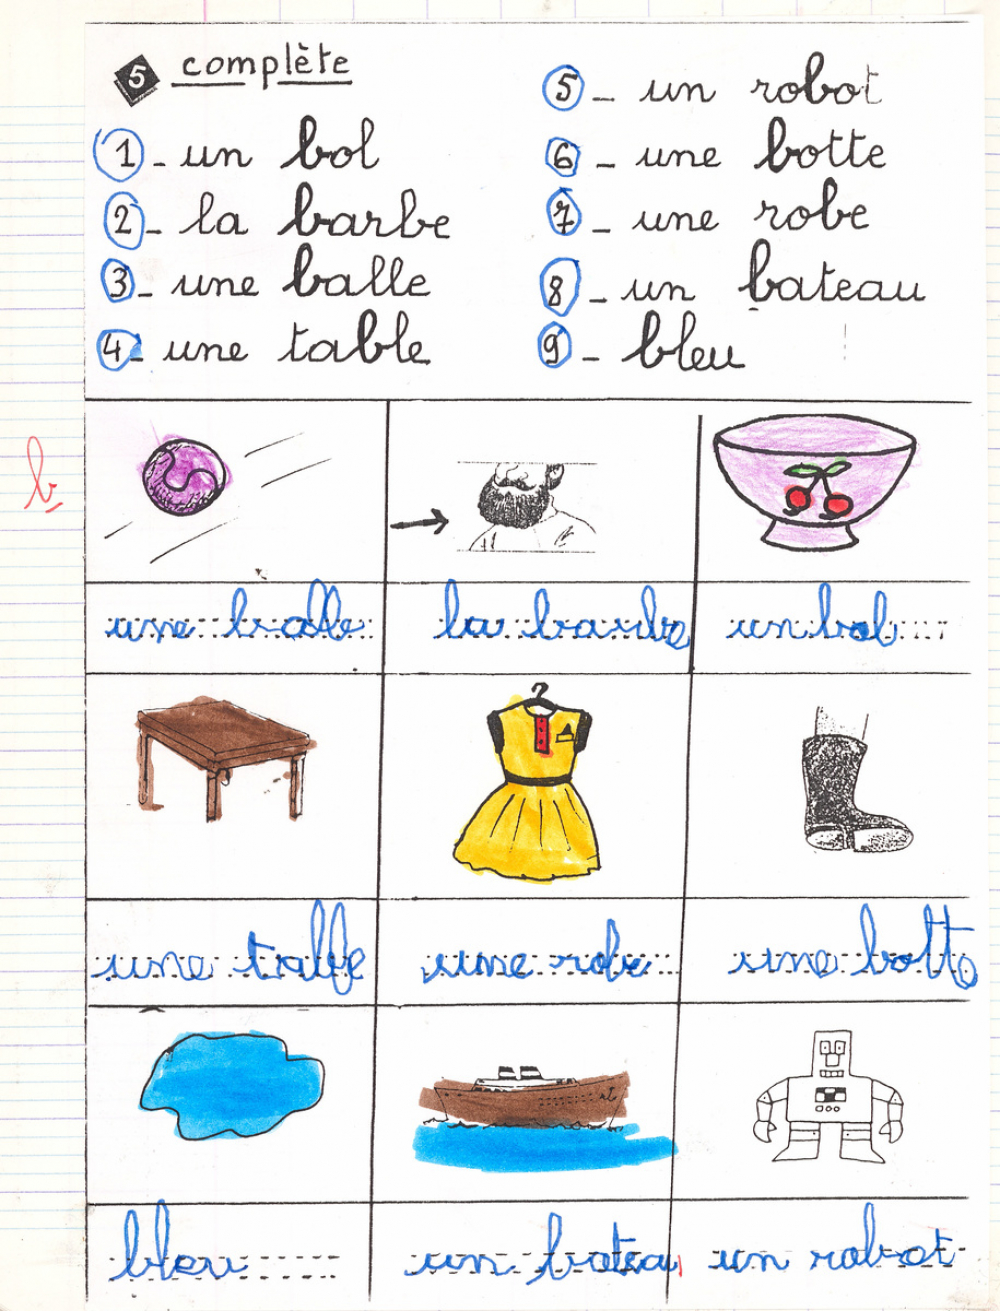 5 complète
1 - un bol
2 - la barbe
3 - une balle
4 - une table
5 - un robot
6 - une botte
7 - une robe
8 - un bateau
9 - bleu
b
une balle
la barbe
un bol
une table
une robe
une botte
bleu
un batea
un robot